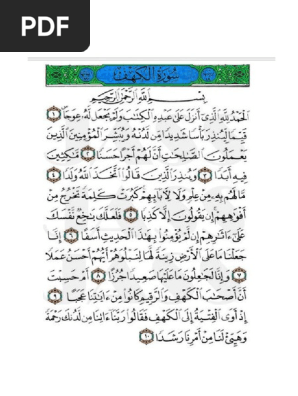 PDF
سُورَةُ الكَهْفِ
بِسْمِ اللَّهِ الرَّحْمَٰنِ الرَّحِيمِ
الْحَمْدُ لِلَّهِ الَّذِي أَنزَلَ عَلَىٰ عَبْدِهِ الْكِتَابَ وَلَمْ يَجْعَل لَّهُ عِوَجًا ١
قَيِّمًا لِّيُنذِرَ بَأْسًا شَدِيدًا مِّن لَّدُنْهُ وَيُبَشِّرَ الْمُؤْمِنِينَ الَّذِينَ
يَعْمَلُونَ الصَّالِحَاتِ أَنَّ لَهُمْ أَجْرًا حَسَنًا ٢ مَّاكِثِينَ
فِيهِ أَبَدًا ٣ وَيُنذِرَ الَّذِينَ قَالُوا اتَّخَذَ اللَّهُ وَلَدًا ٤
مَّا لَهُم بِهِ مِنْ عِلْمٍ وَلَا لِآبَائِهِمْ كَبُرَتْ كَلِمَةً تَخْرُجُ مِنْ
أَفْوَاهِهِمْ إِن يَقُولُونَ إِلَّا كَذِبًا ٥ فَلَعَلَّكَ بَاخِعٌ نَّفْسَكَ
عَلَىٰ آثَارِهِمْ إِن لَّمْ يُؤْمِنُوا بِهَٰذَا الْحَدِيثِ أَسَفًا ٦ إِنَّا
جَعَلْنَا مَا عَلَى الْأَرْضِ زِينَةً لَّهَا لِنَبْلُوَهُمْ أَيُّهُمْ أَحْسَنُ عَمَلًا
٧ وَإِنَّا لَجَاعِلُونَ مَا عَلَيْهَا صَعِيدًا جُرُزًا ٨ أَمْ حَسِبْتَ
أَنَّ أَصْحَابَ الْكَهْفِ وَالرَّقِيمِ كَانُوا مِنْ آيَاتِنَا عَجَبًا ٩
إِذْ أَوَى الْفِتْيَةُ إِلَى الْكَهْفِ فَقَالُوا رَبَّنَا آتِنَا مِن لَّدُنكَ رَحْمَةً
وَهَيِّئْ لَنَا مِنْ أَمْرِنَا رَشَدًا ١٠